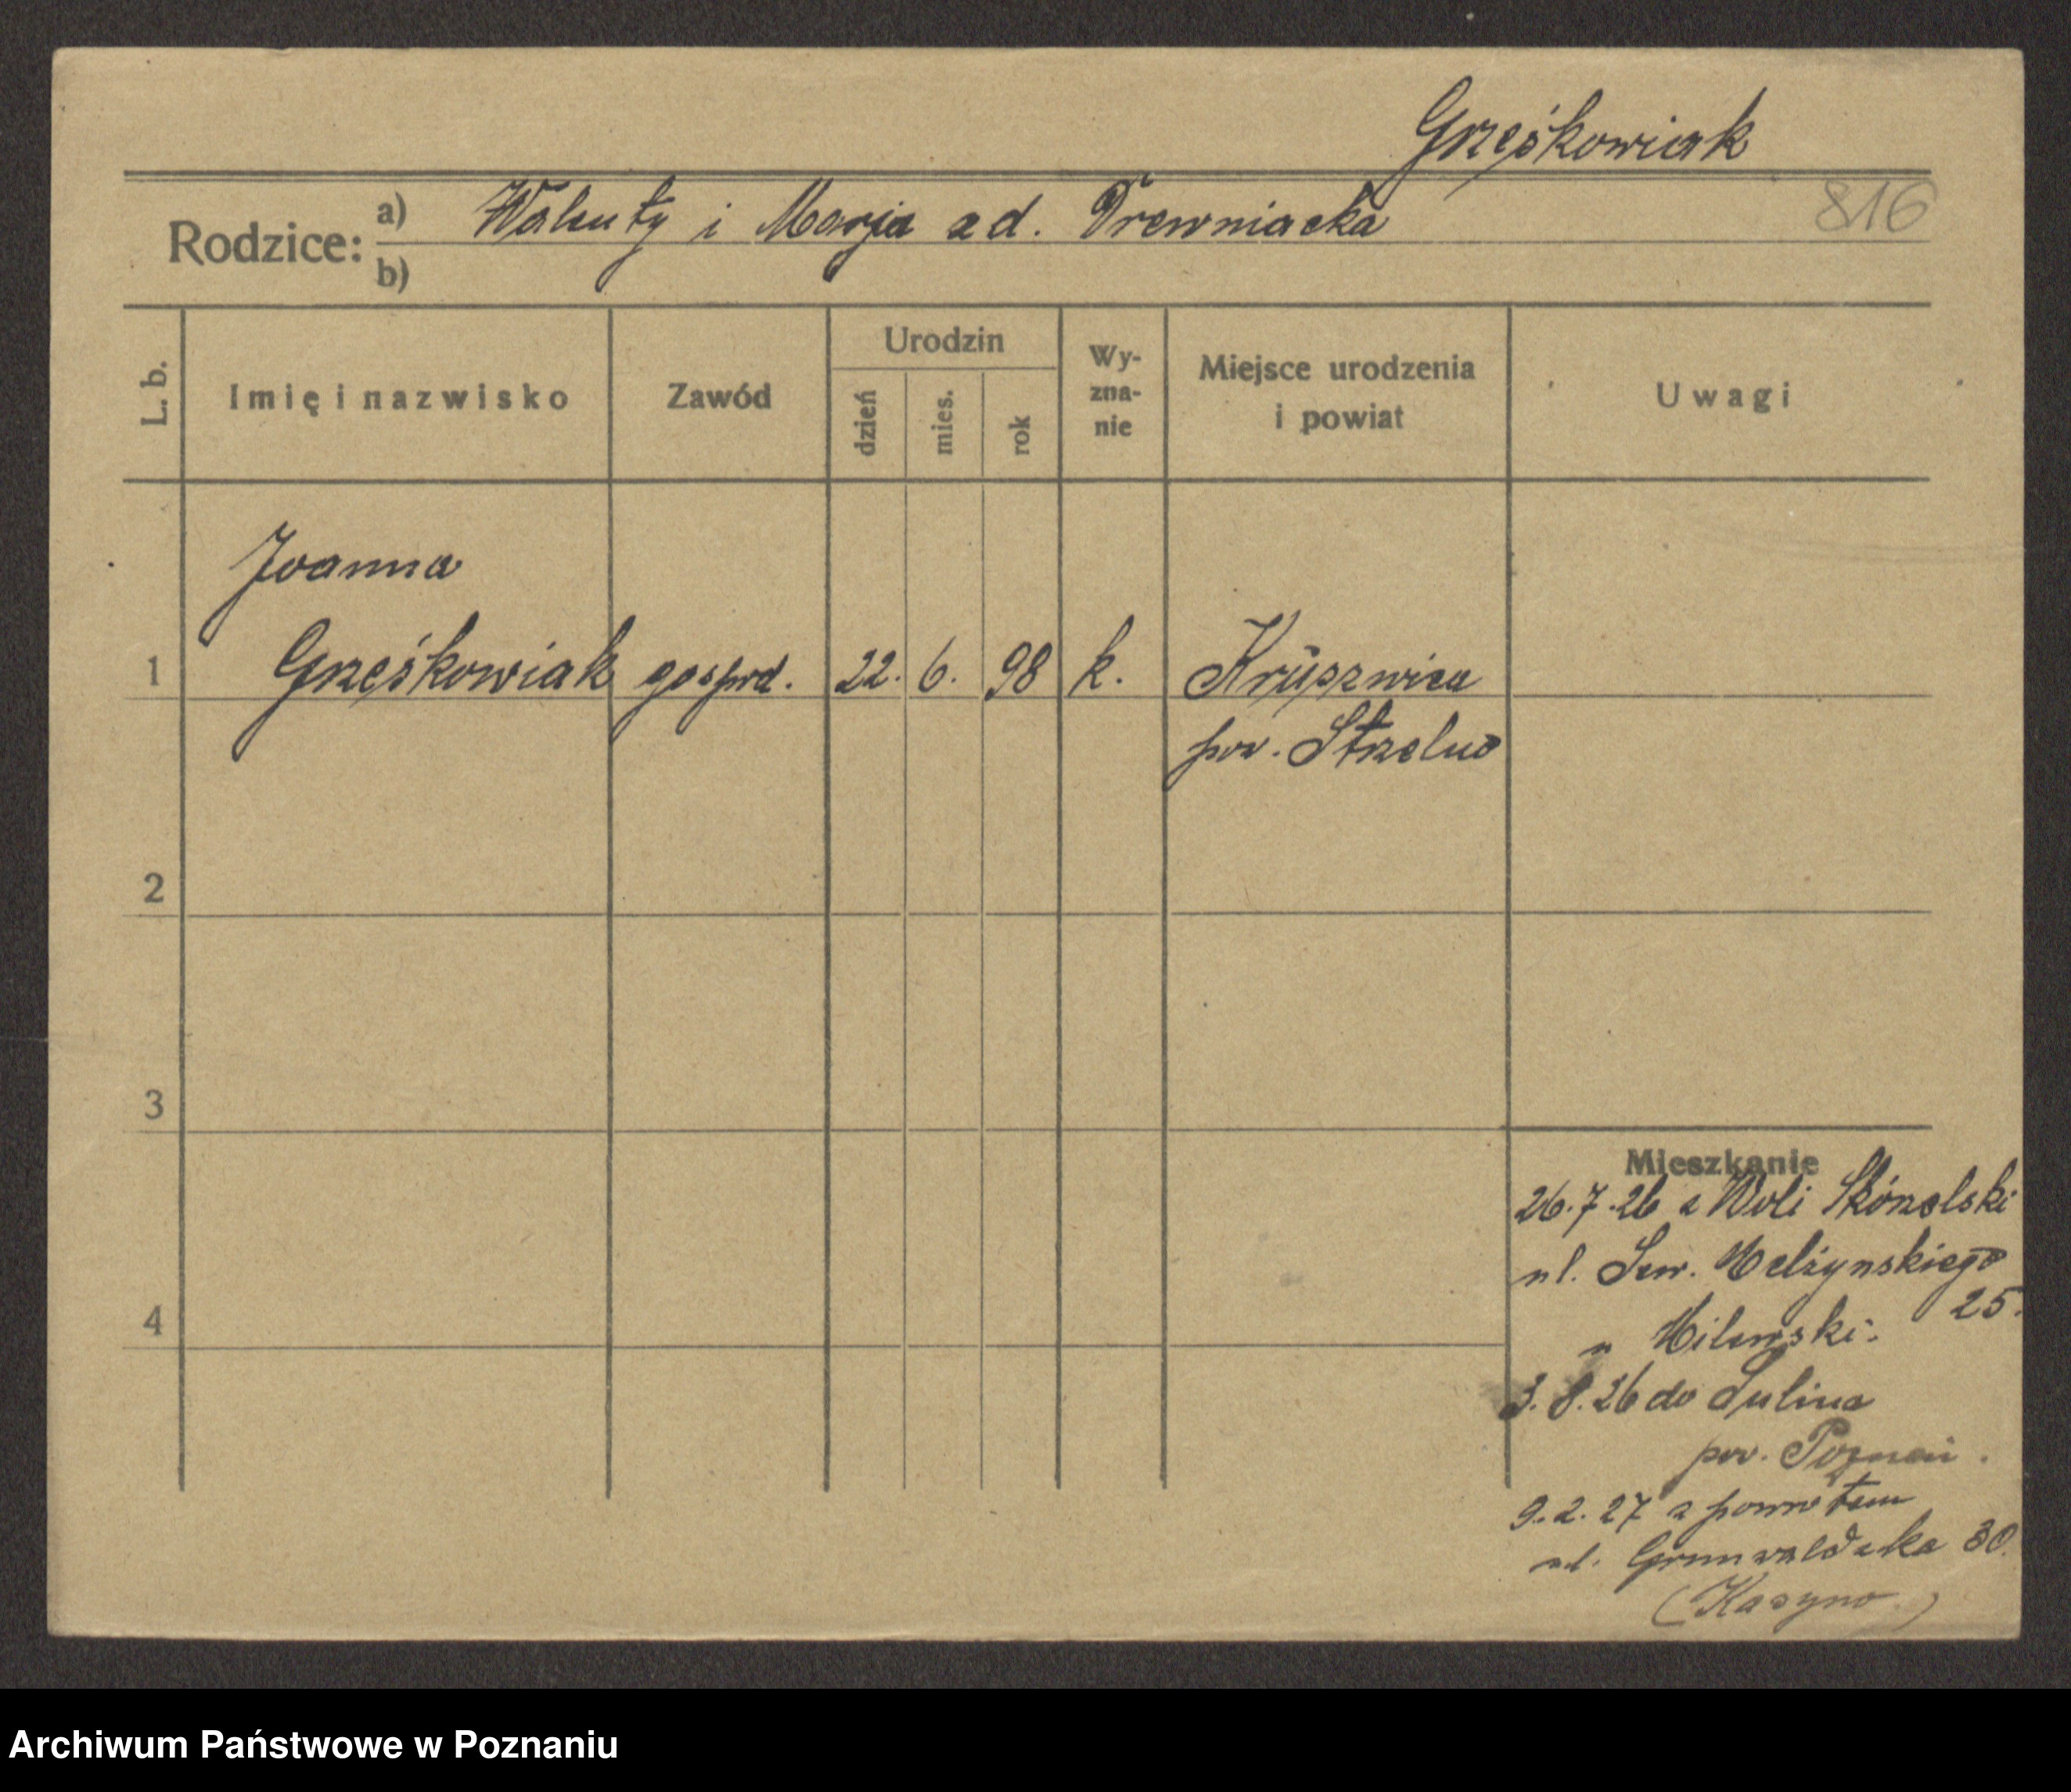 Grześkowiak
816
Rodzice: a) Walenty i Marja zd. Drewniacka
b)
L. b. Imię i nazwisko Zawód Urodzin dzień mies. rok Wyznanie Miejsce urodzenia i powiat Uwagi
Joanna
1 Grześkowiak gospod. 22. 6. 98 k. Kruszwica
pow. Strzelno
2
3
4
Mieszkanie
26.7.26 z Woli
ul. Sew. Melżynskiego
25.
u Milewski.
3.8.26 do
pow. Poznań.
9.2.27 z powrotem
ul. Grunwaldzka 30.
(Kasyno)
Archiwum Państwowe w Poznaniu